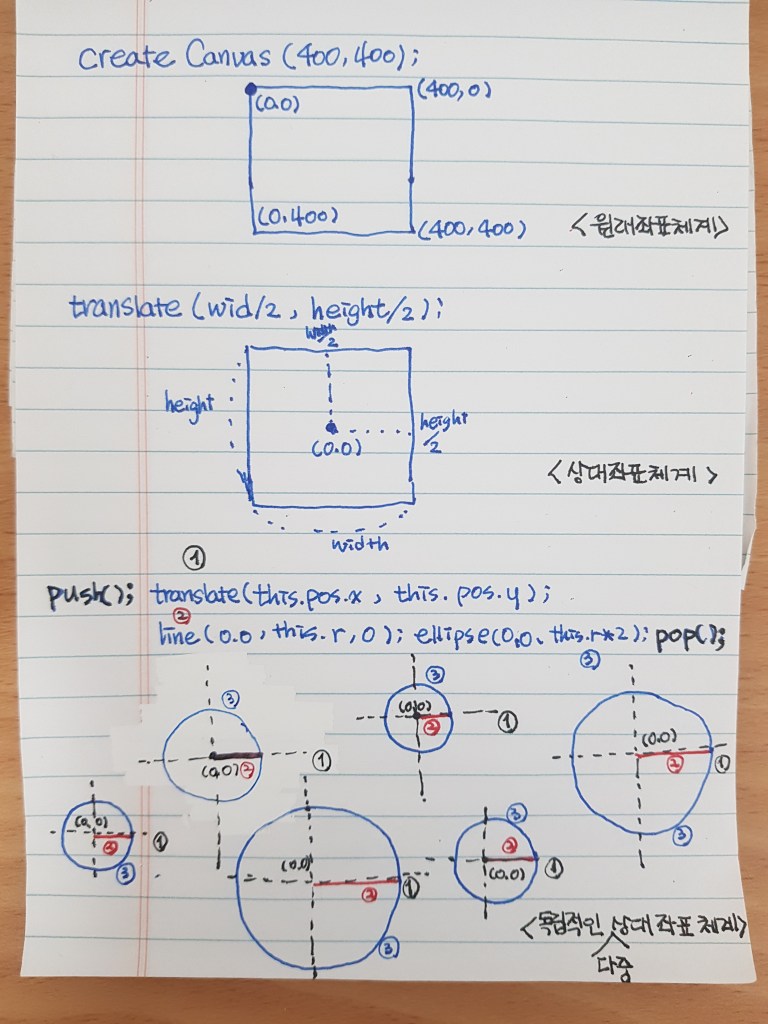 create Canvas (400,400);
(0.0) (400,0)
(0.400) (400,400) <원래좌표체계>
translate (wid/2, height/2);
width/2
height
height/2
(0.0)
<상대좌표체계>
width
①
push(); translate(this.pos.x, this.pos.y);
②
line(0.0, this.r, 0); ellipse(0,0, this.r*2); pop();
③
③ ③
(0,0) ② ①
(0,0) ② ①
(0,0) ② ① ③
(0,0) ② ① ③
(0,0) ② ① ③
③ ② (0.0) ①
<독립적인 상대좌표체계>
다중